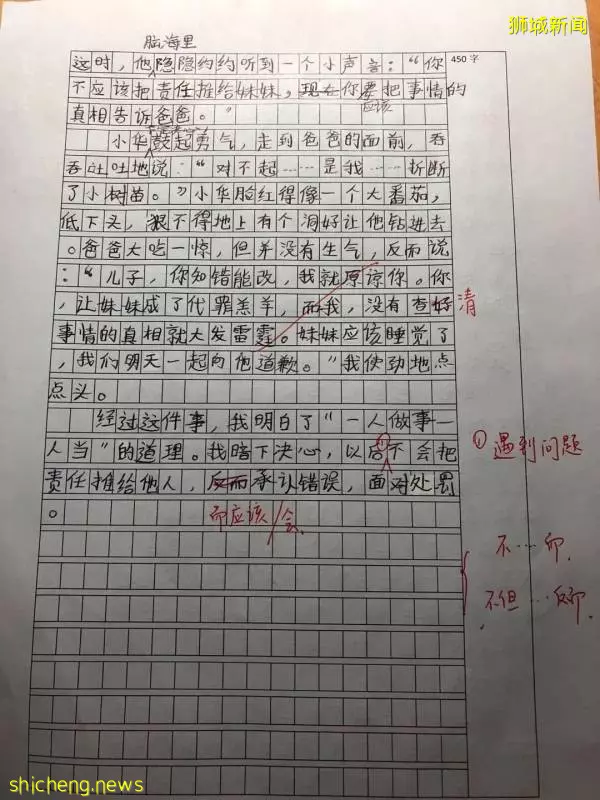 狮城新闻
脑海里
450字
这时，他隐隐约约听到一个小声音：“你
不应该把责任推给妹妹，现在你要把事情的
应该
真相告诉爸爸。”
小华鼓起勇气，走到爸爸的面前，吞
吞吐吐地说：“对不起……是我……折断
了小树苗。”小华脸红得像一个大番茄，
低下头，狠不得地上有个洞好让他钻进去
。爸爸大吃一惊，但并没有生气，反而说
：“儿子，你知错能改，我就原谅你。你
，让妹妹成了代罪羔羊，而我，没有查好清
事情的真相就大发雷霆。妹妹应该睡觉了
，我们明天一起向他道歉。”我使劲地点
点头。
经过这件事，我明白了“一人做事一
人当”的道理。我暗下决心，以后不会把
①遇到问题
责任推给他人，反而承认错误，面对处罚
。
而应该/会
不……而
不但……反而
shicheng.news